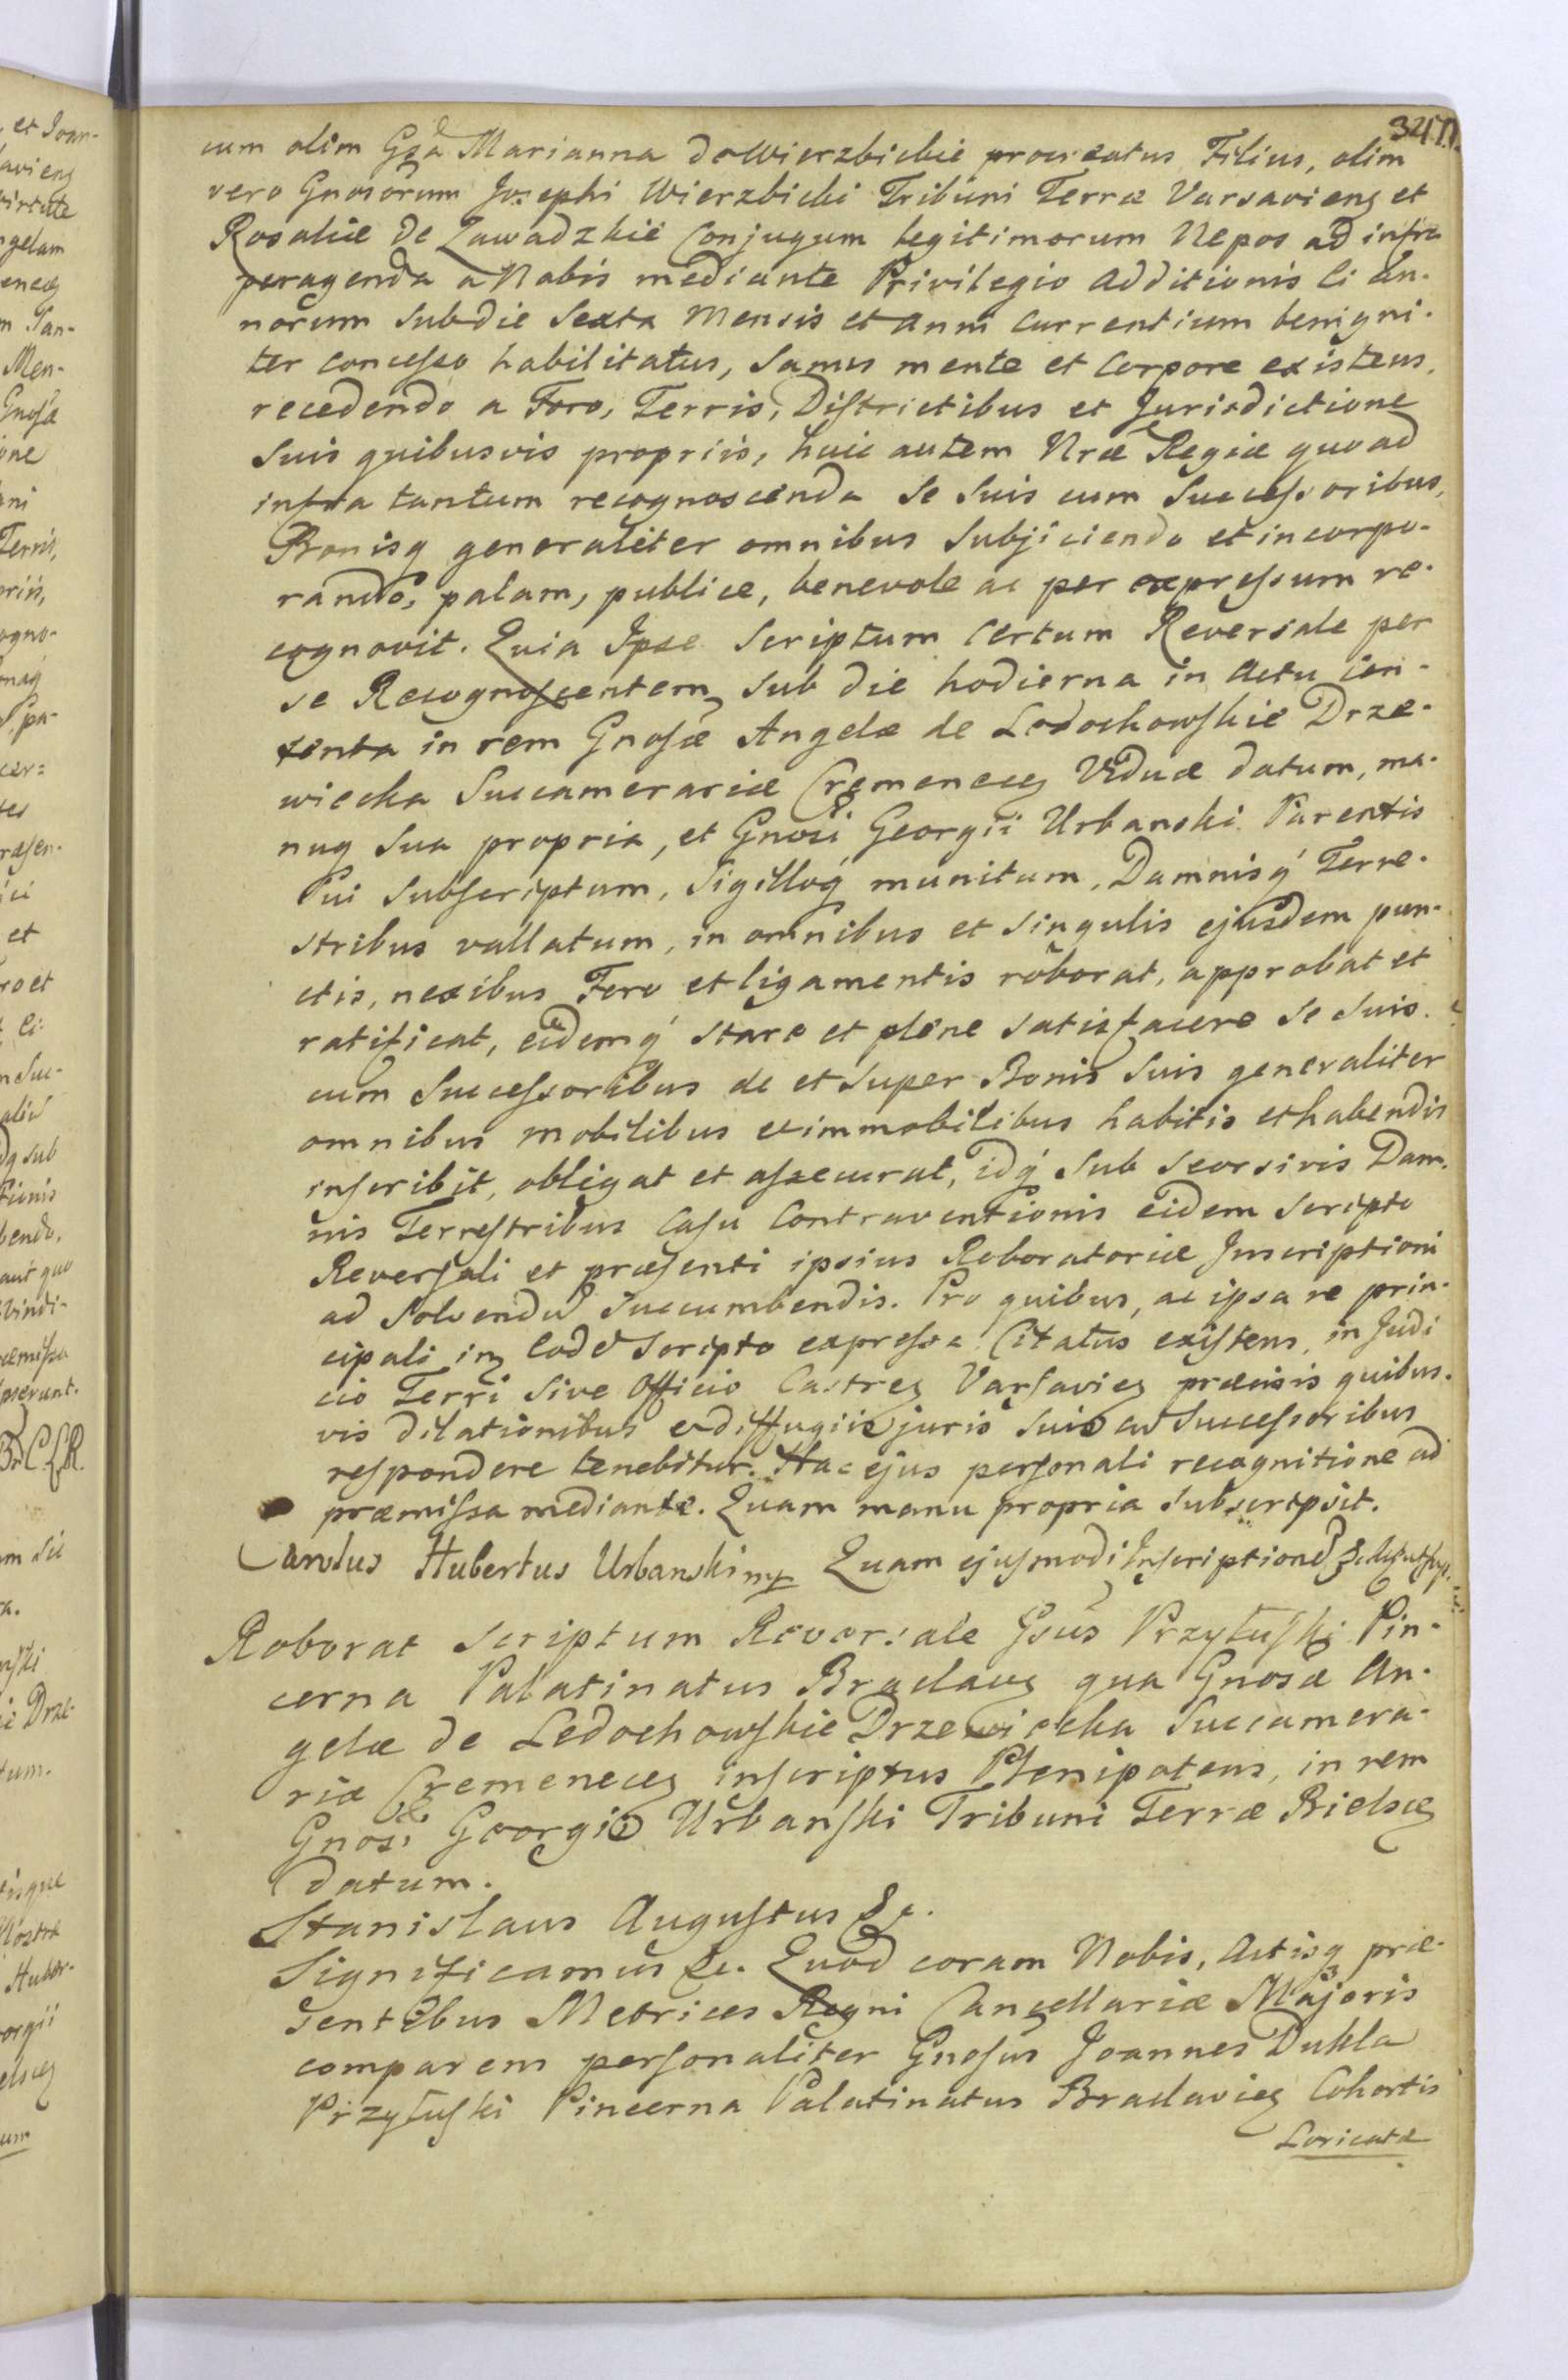 321.
cum olim Gsa Marianna de Wierzbickie procreatus Filius, olim
vero Gnosorum Josephi Wierzbicki Tribuni Terræ Varsavieng et
Rosaliæ de Zawadzkie Conjugum legitimorum Nepos ad infra
peragenda a Nobis mediante Privilegio additionis li an-
norum sub die Sexta Mensis et anni currentium benigni-
ter concesso habilitatus, Sanus mente et Corpore existens,
recedendo a Foro, Terris, Districtibus et Jurisdictione
Suis quibusvis propriis, huic autem Nræ Regiæ quo ad
infra tantum recognoscenda Se Suis cum Successoribus,
Bonisq generaliter omnibus Subjiciendo et incorpo-
rando, palam, publice, benevole ac per expressum re-
cognovit. Quia Ipse Scriptum certum Reversale per
se Recognoscentem, Sub die hodierna in actu con-
tenta in rem Gnosæ Angelæ de Ledochowskie Drze-
wiecka Succamerariæ Cremeneceg Viduæ datum, ma-
nuq Sua propria, et Gnosi Georgii Urbanski Parentis
Sui Subscriptum, Sigilloq munitum, Damnisq Terre-
stribus vallatum, in omnibus et singulis ejusdem pun-
ctis, nexibus Foro et ligamentis roborat, approbat et
ratificat, eidemq stare et plene satisfacere Se Suis
cum Successoribus de et super Bonis Suis generaliter
omnibus mobilibus et immobilibus habitis et habendis
inscribit, obligat et assecurat, idq Sub seorsivis Dam-
nis Terrestribus Casu Contraventionis eidem Scripto
Reversali et præsenti ipsius Roboratoriæ Inscriptioni
ad Solvendu Succumbendis. Pro quibus, ac ipsa re prin-
cipali in eode Scripto expressa Citatus existens, in Judi
cio Terri Sive Officio Castreg Varsavieg præcisis quibus-
vis dilationibus et diffugiis juris Suis cu Successoribus
respondere tenebitur. Hac ejus personali recognitione ad
præmissa mediante. Quam manu propria Subscripsit.
Carolus Hubertus Urbanski mp Quam ejusmodi Inscriptione
Roborat Scriptum Reversale Gsus Przyłuski Pin-
cerna Palatinatus Braclaveg qua Gnosæ An-
gelæ de Ledochowskie Drzewiecka Succamera-
riæ Cremeneceg inscriptus Plenipotens, in rem
Gnosi Georgii Urbanski Tribuni Terræ Bielsceg
datum.
Stanislaus Augustus &c.
Significamus &c. Quod coram Nobis, Actisq præ-
sentibus Metrices Regni Cancellariæ Majoris
comparens personaliter Gnosus Joannes Dukla
Przyłuski Pincerna Palatinatus Braclavieg Cohortis
Loricatæ